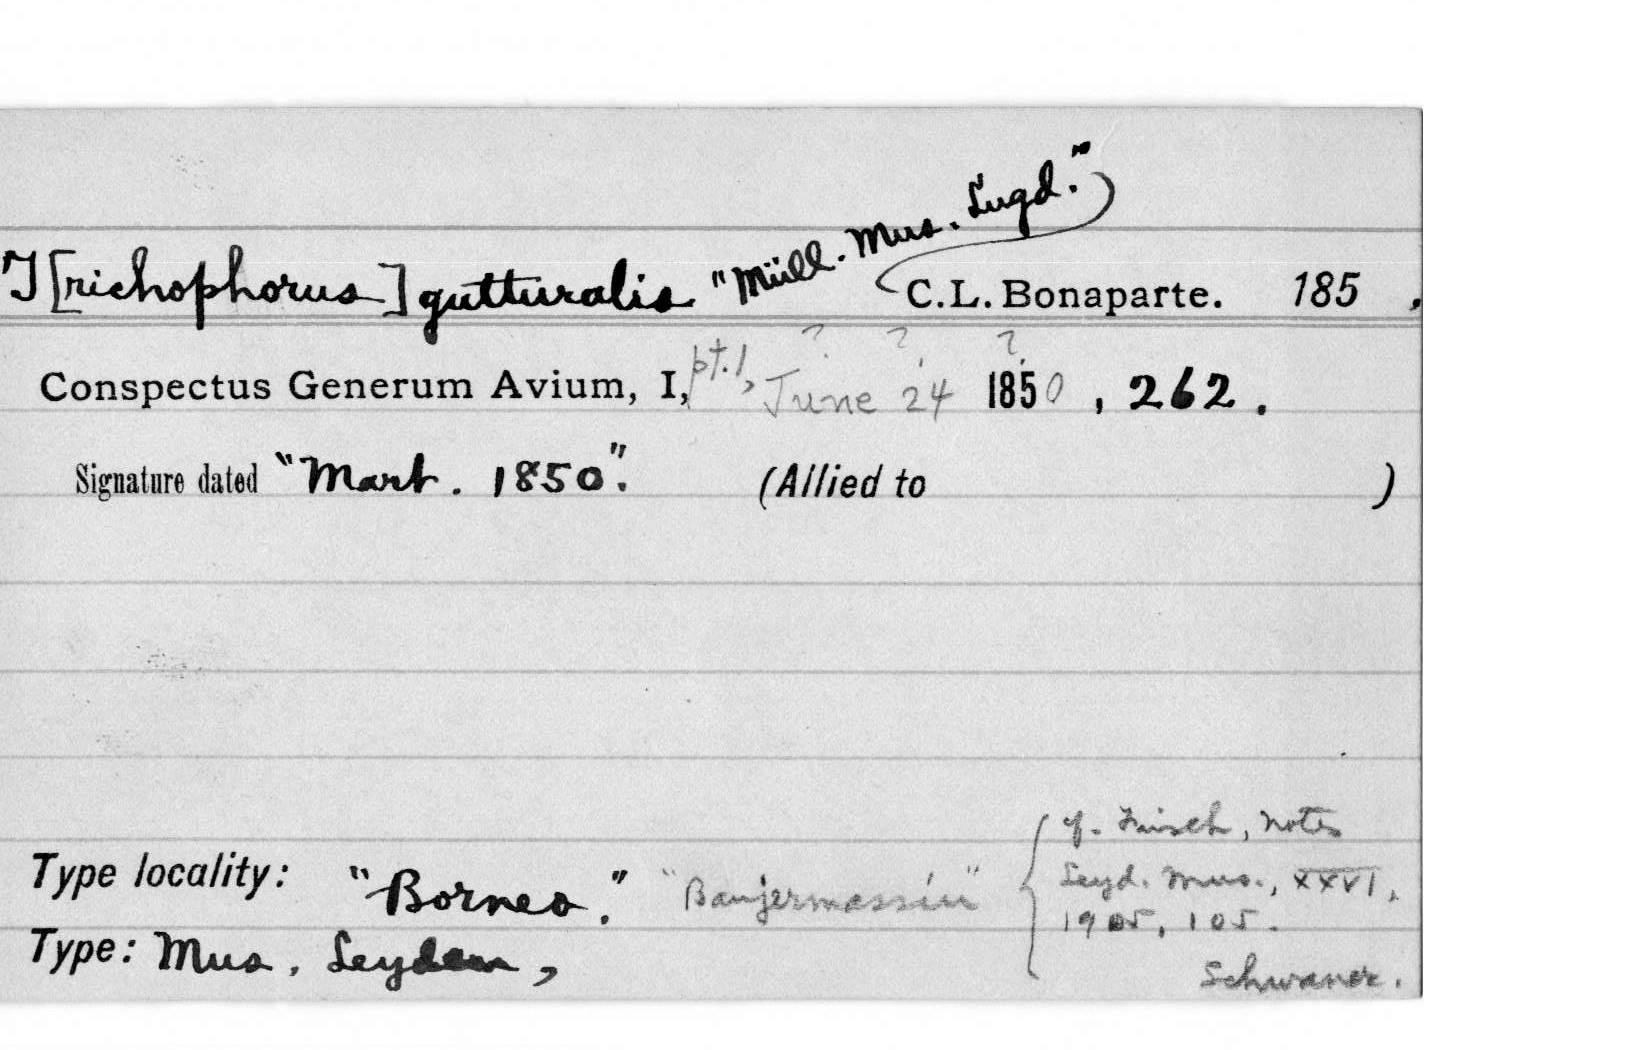 T[richophorus] gutturalis "Müll. Mus. Lugd." C.L. Bonaparte. 185 ,
? ? ?
Conspectus Generum Avium, I, pt. 1, June 24 1850 , 262 .
Signature dated "Mart. 1850". (Allied to )
cf. Finsch, Notes
Leyd. Mus., XXVI,
1905, 105.
Schwaner.
Type locality: "Borneo." "Banjermassin"
Type: Mus. Leyden,